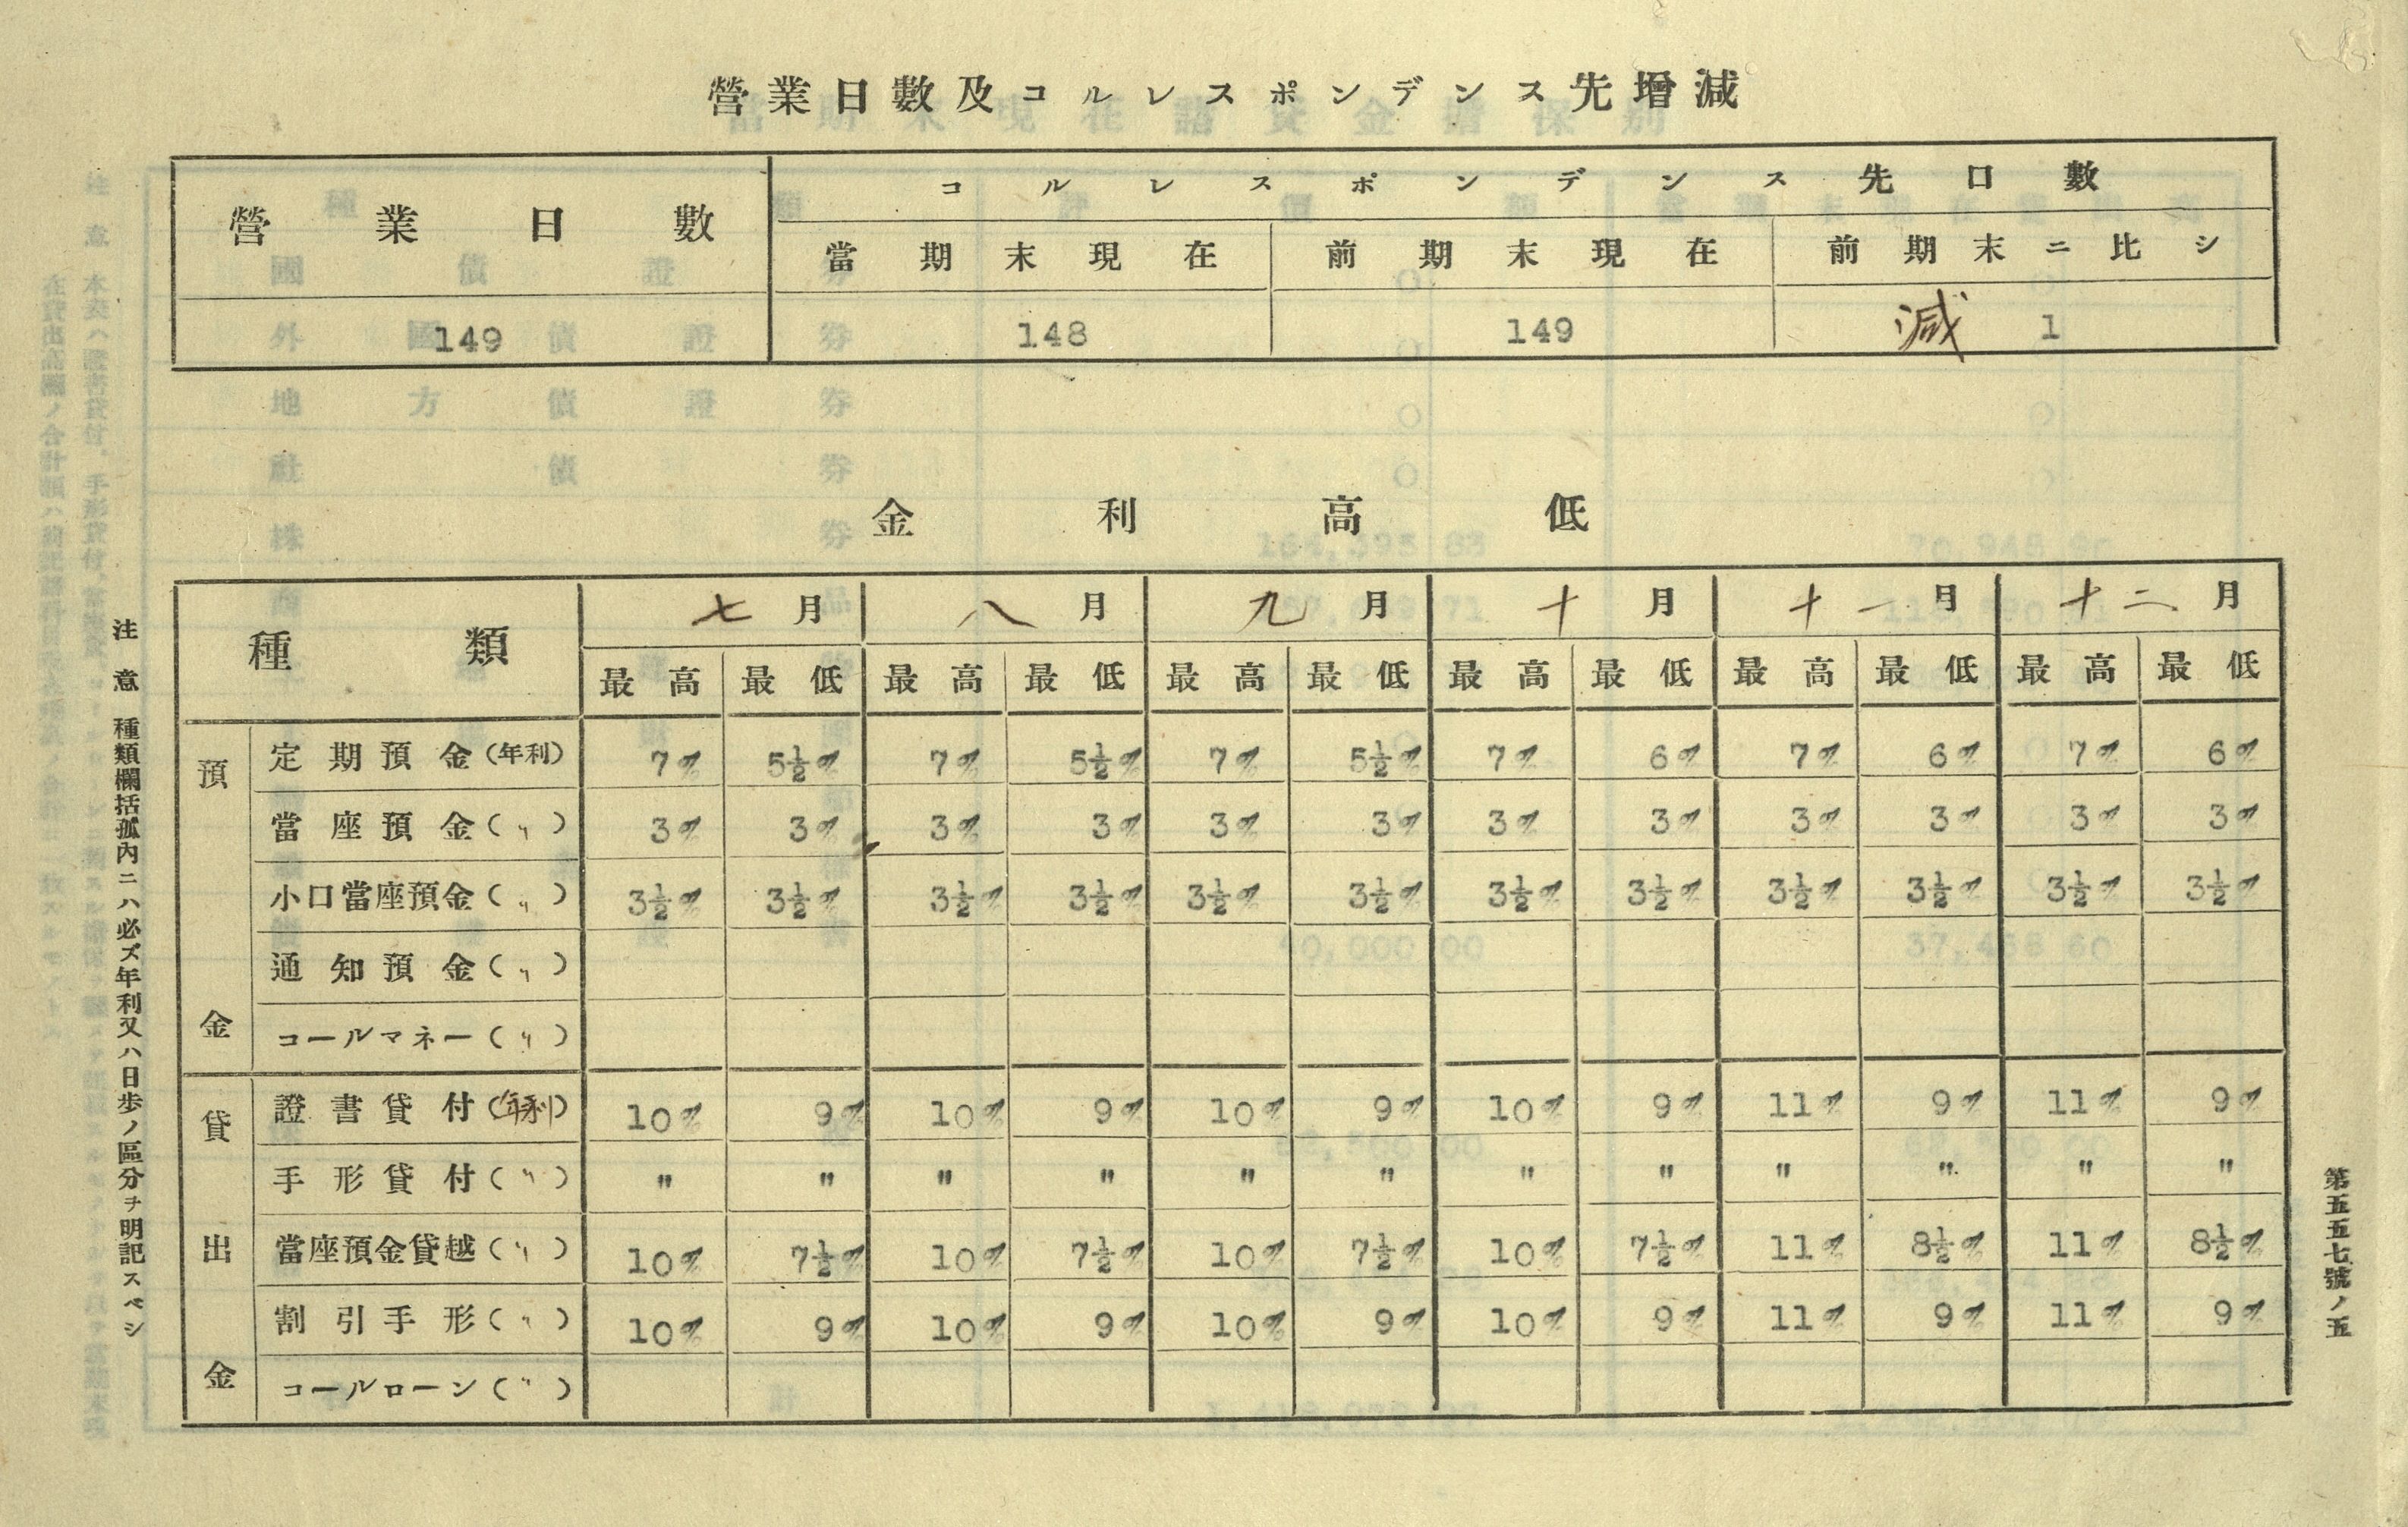 營業日數及コルレスポンデンス先增減
營業日數 コルレスポンデンス先口數
當期末現在 前期末現在 前期末ニ比シ
149 148 149 減 1
金利高低
種類 七月 八月 九月 十月 十一月 十二月
最高 最低 最高 最低 最高 最低 最高 最低 最高 最低 最高 最低
預金
定期預金(年利) 7% 5½% 7% 5½% 7% 5½% 7% 6% 7% 6% 7% 6%
當座預金(〃) 3% 3% 3% 3% 3% 3% 3% 3% 3% 3% 3% 3%
小口當座預金(〃) 3½% 3½% 3½% 3½% 3½% 3½% 3½% 3½% 3½% 3½% 3½% 3½%
通知預金(〃)
コールマネー(〃)
貸出金
證書貸付(年利) 10% 9% 10% 9% 10% 9% 10% 9% 11% 9% 11% 9%
手形貸付(〃) " " " " " " " " " " " "
當座預金貸越(〃) 10% 7½% 10% 7½% 10% 7½% 10% 7½% 11% 8½% 11% 8½%
割引手形(〃) 10% 9% 10% 9% 10% 9% 10% 9% 11% 9% 11% 9%
コールローン(〃)
注意 種類欄括孤內ニハ必ズ年利又ハ日步ノ區分ヲ明記スベシ
第五五七號ノ五